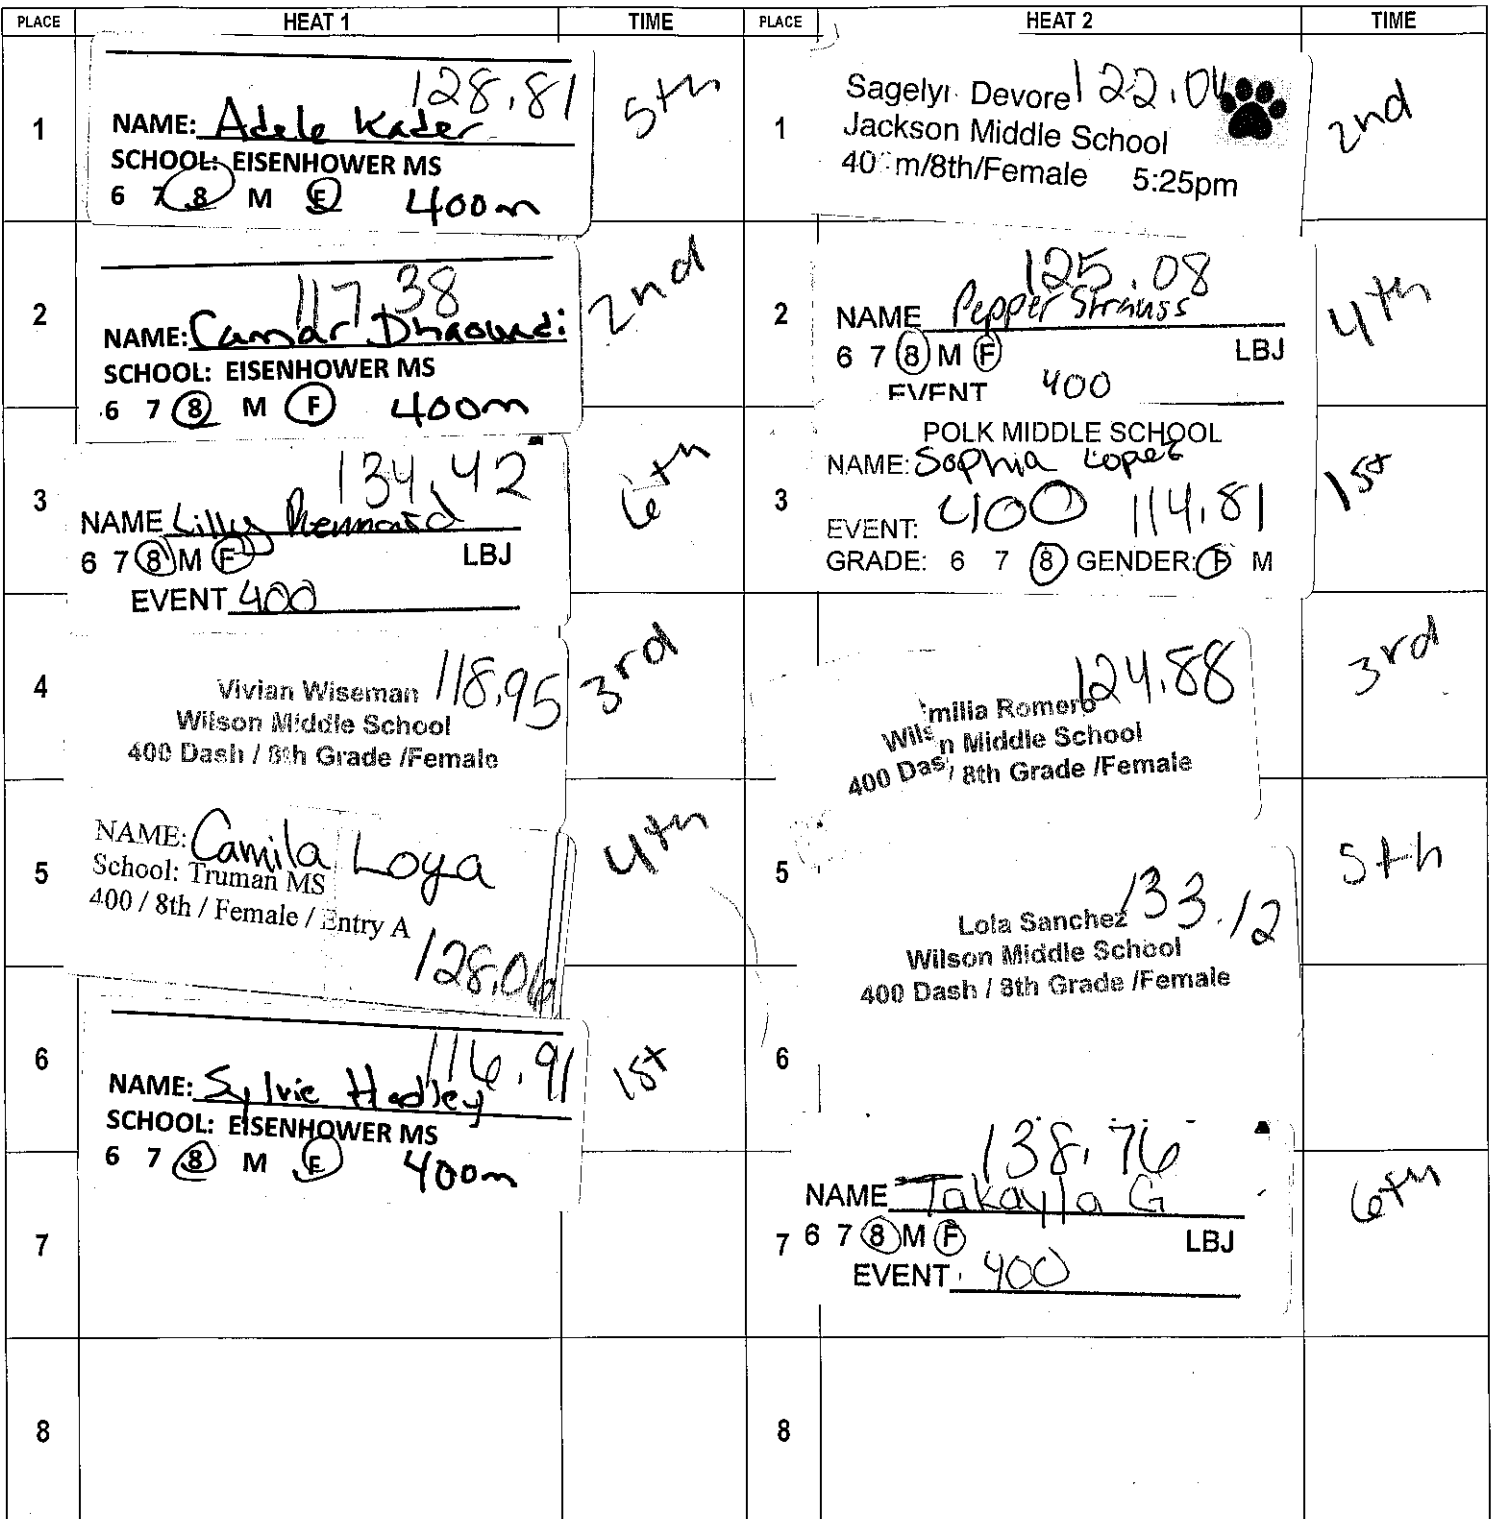 PLACE HEAT 1 TIME PLACE HEAT 2 TIME
1
128.81
NAME: Adele Kader
SCHOOL: EISENHOWER MS
6 7 8 M F 400m
5th
2
117.38
NAME: Camar Dhaouadi
SCHOOL: EISENHOWER MS
6 7 8 M F 400m
2nd
3
134.42
NAME Lilly
6 7 8 M F LBJ
EVENT 400
6th
4
Vivian Wiseman 118.95
Wilson Middle School
400 Dash / 8th Grade /Female
3rd
5
NAME: Camila Loya
School: Truman MS
400 / 8th / Female / Entry A
128.06
4th
6
116.91
NAME: Sylvie Hadley
SCHOOL: EISENHOWER MS
6 7 8 M F 400m
1st
7
8
1
Devore 122.06
Jackson Middle School
m/8th/Female 5:25pm
2nd
2
125.08
NAME Pepper Strauss
6 7 8 M F LBJ
EVENT 400
4th
3
POLK MIDDLE SCHOOL
NAME: Sophia Lopez
EVENT: 400 114.81
GRADE: 6 7 8 GENDER: F M
1st
4
124.88
milia Romero
Wilson Middle School
400 Das/ 8th Grade /Female
3rd
5
Lola Sanchez 133.12
Wilson Middle School
400 Dash / 8th Grade /Female
5th
6
7
138.76
NAME Takayla G
6 7 8 M F LBJ
EVENT 400
6th
8